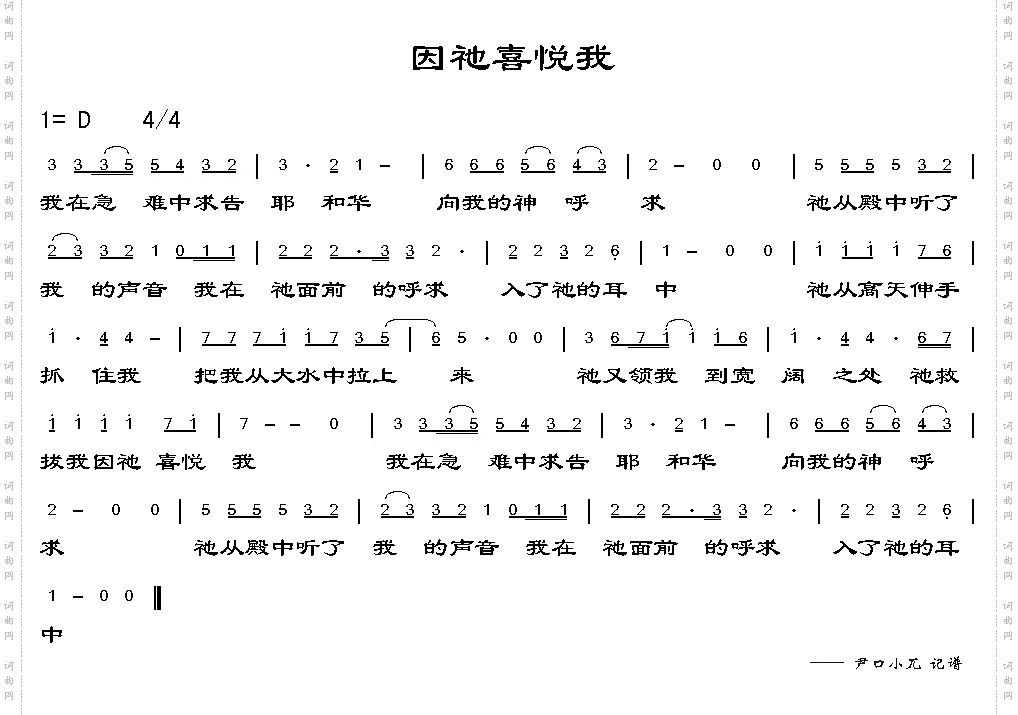 因祂喜悦我
1= D 4/4
3 3 3 5 5 4 3 2 | 3 · 2 1 – | 6 6 6 5 6 4 3 | 2 – 0 0 | 5 5 5 5 3 2 |
我在急 难中求告 耶 和华 向我的神 呼 求 祂从殿中听了
2 3 3 2 1 0 1 1 | 2 2 2 · 3 3 2 · | 2 2 3 2 6 | 1 – 0 0 | 1 1 1 1 7 6 |
我 的声音 我在 祂面前 的呼求 入了祂的耳 中 祂从高天伸手
1 · 4 4 – | 7 7 7 1 1 7 3 5 | 6 5 · 0 0 | 3 6 7 1 1 1 6 | 1 · 4 4 · 6 7 |
抓 住我 把我从大水中拉上 来 祂又领我 到宽 阔 之处 祂救
1 1 1 1 7 1 | 7 – – 0 | 3 3 3 5 5 4 3 2 | 3 · 2 1 – | 6 6 6 5 6 4 3 |
拔我因祂 喜悦 我 我在急 难中求告 耶 和华 向我的神 呼
2 – 0 0 | 5 5 5 5 3 2 | 2 3 3 2 1 0 1 1 | 2 2 2 · 3 3 2 · | 2 2 3 2 6 |
求 祂从殿中听了 我 的声音 我在 祂面前 的呼求 入了祂的耳
1 – 0 0
中
—— 尹口小兀 记谱
词曲网